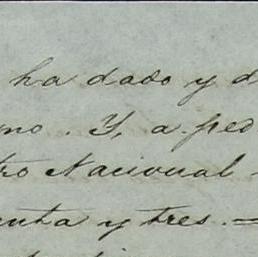 ha dado y d
mo. Y, a ped
tro Nacional
enta y tres. =